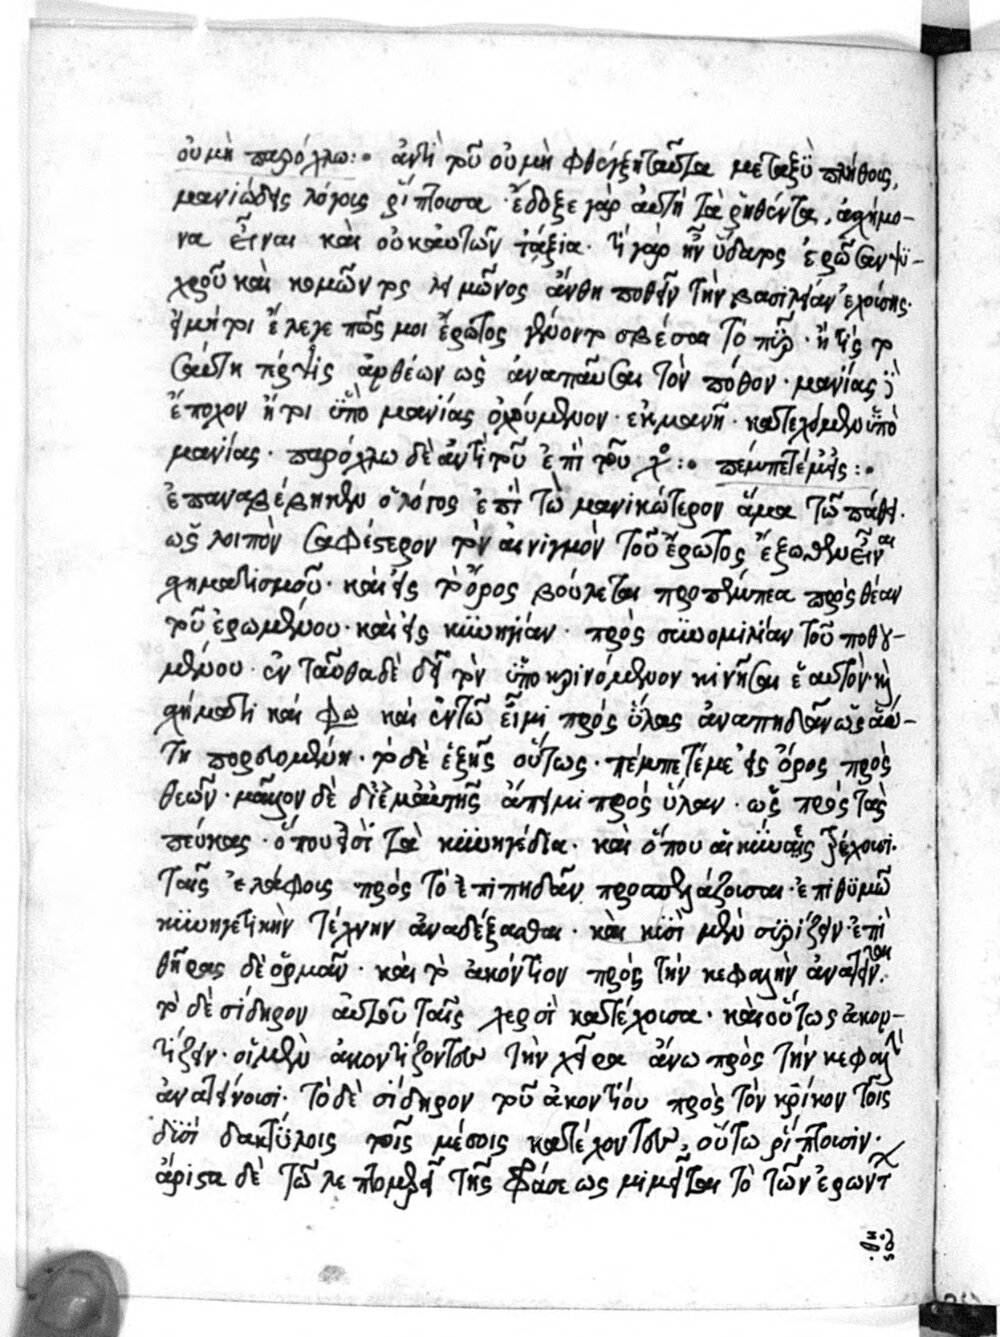 οὐ μὴ παρόχλω:· ἀντὶ τοῦ οὐ μὴ φθέγξη ταῦτα μεταξὺ πλήθους,
μανιώδεις λόγους ῥίπτουσα· ἔδοξε γὰρ αὐτῆ τὰ ῥηθέντα, ἀσχήμο-
να εἶναι καὶ οὐκ αὐτῶν τάξια· τί γὰρ ἦν ὕδατος ἐρῶσαν ψυ-
χροῦ καὶ κομῶντος λειμῶνος ἄνθη ποθεῖν τὴν βασιλείαν ἐχούσης·
ἔλεγε πῶς μοι ἔρωτος γένοιτο σβέσαι τὸ πῦρ· ἢ τίς
ὡς ἀναπαῦσαι τὸν πόθον· μανίας
ἔποχον ἤτοι ὑπὸ μανίας ὀχούμενον· ἐκμανῆ· κατεχόμενον ὑπὸ
μανίας· παρόχλω δὲ ἀντὶ τοῦ ἐπὶ τοῦ :· πέμπετέ μ' εἰς:·
ἐπαναβέβηκεν ὁ λόγος ἐπὶ τὸ μανικώτερον ἅμα τῶ πάθει·
ὡς λοιπὸν σαφέστερον τὸν αἰνιγμὸν τοῦ ἔρωτος ἔξωθεν εἶναι
σχηματισμοῦ· καὶ εἰς τὸ ὄρος βούλεται προπέμπεα πρὸς θέαν
τοῦ ἐρωμένου· καὶ εἰς κυνηγίαν· πρὸς συνομιλίαν τοῦ ποθου-
μένου· ἐνταῦθα δὲ δεῖ τὸν ὑποκρινόμενον κινῆσαι ἑαυτὸν καὶ
σχήματι καὶ φω καὶ ἐν τῶ εἶμι πρὸς ὕλας ἀναπηδᾶν ὡς αὐ-
τὴ πορευομένη· τὸ δὲ ἑξῆς οὕτως· πέμπετέ με εἰς ὄρος πρὸς
θεῶν· μᾶλλον δὲ δι' ἐμαυτῆς ἄπειμι πρὸς ὕλαν· ὡς πρὸς τὰς
πεύκας· ὅπου εἰσὶ τὰ κυνηγέσια· καὶ ὅπου αἱ κύνες τρέχουσι·
ταῖς ἐλάφοις πρὸς τὸ ἐπιπηδᾶν προσπελάζουσαι· ἐπιθυμῶ
κυνηγετικὴν τέχνην ἀναδέξασθαι· καὶ κυσὶ μὲν συρίζειν· ἐπὶ
θῆρας δὲ ὁρμᾶν· καὶ τὸ ἀκόντιον πρὸς τὴν κεφαλὴν ἀνατεῖναι·
τὸ δὲ σίδηρον αὐτοῦ ταῖς χερσὶ κατέχουσα· καὶ οὕτως ἀκον-
τίζειν· οἱ μὲν ἀκοντίζοντες τὴν χεῖρα ἄνω πρὸς τὴν κεφαλὴν
ἀνατείνουσι· τὸ δὲ σίδηρον τοῦ ἀκοντίου πρὸς τὸν κρίκον τοῖς
δυσὶ δακτύλοις τοῖς μέσοις κατέχοντες, οὕτω ῥίπτουσιν·
ἄριστα δὲ τῶ λεγομένω τῆς φράσεως μιμεῖται τὸ τῶν ἐρώντ